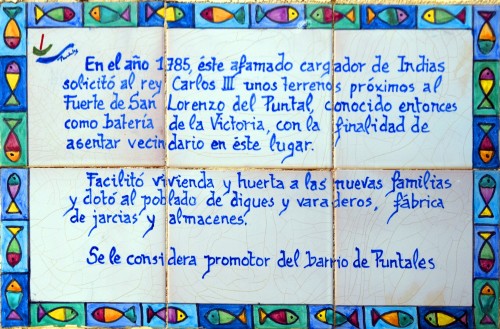 En el año 1785, éste afamado cargador de Indias
solicitó al rey Carlos III unos terrenos próximos al
Fuerte de San Lorenzo del Puntal, conocido entonces
como batería de la Victoria, con la finalidad de
asentar vecindario en éste lugar.
Facilitó vivienda y huerta a las nuevas familias
y dotó al poblado de diques y varaderos, fábrica
de jarcias y almacenes.
Se le considera promotor del barrio de Puntales